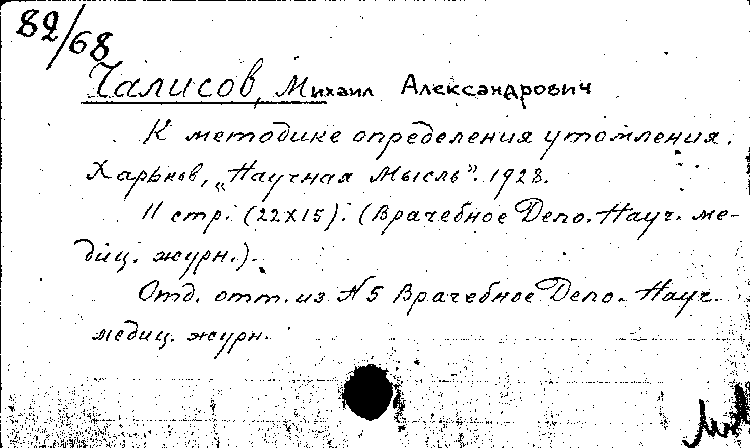 82/68
Чалисов, Михаил Александрович
К методике определения утомления.
Харьков, „Научная Мысль". 1928.
11 стр. (22х15). (Врачебное Дело. Науч. ме-
диц. журн.).
Отд. отт. из N 5 Врачебное Дело. Науч.
медиц. журн.